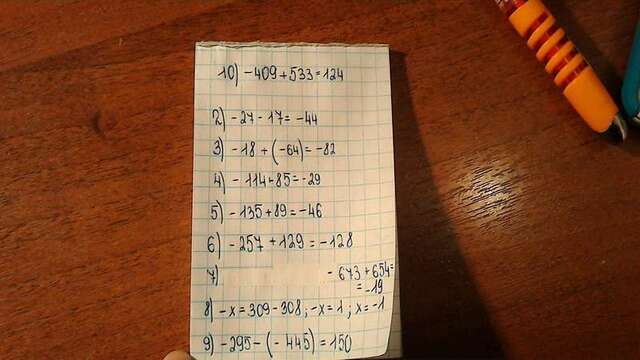 10) -409+533=124
2) -27-17=-44
3) -18+(-64)=-82
4) -114+85=-29
5) -135+89=-46
6) -257+129=-128
7) -673+654=
=-19
8) -x=309-308; -x=1; x=-1
9) -295-(-445)=150